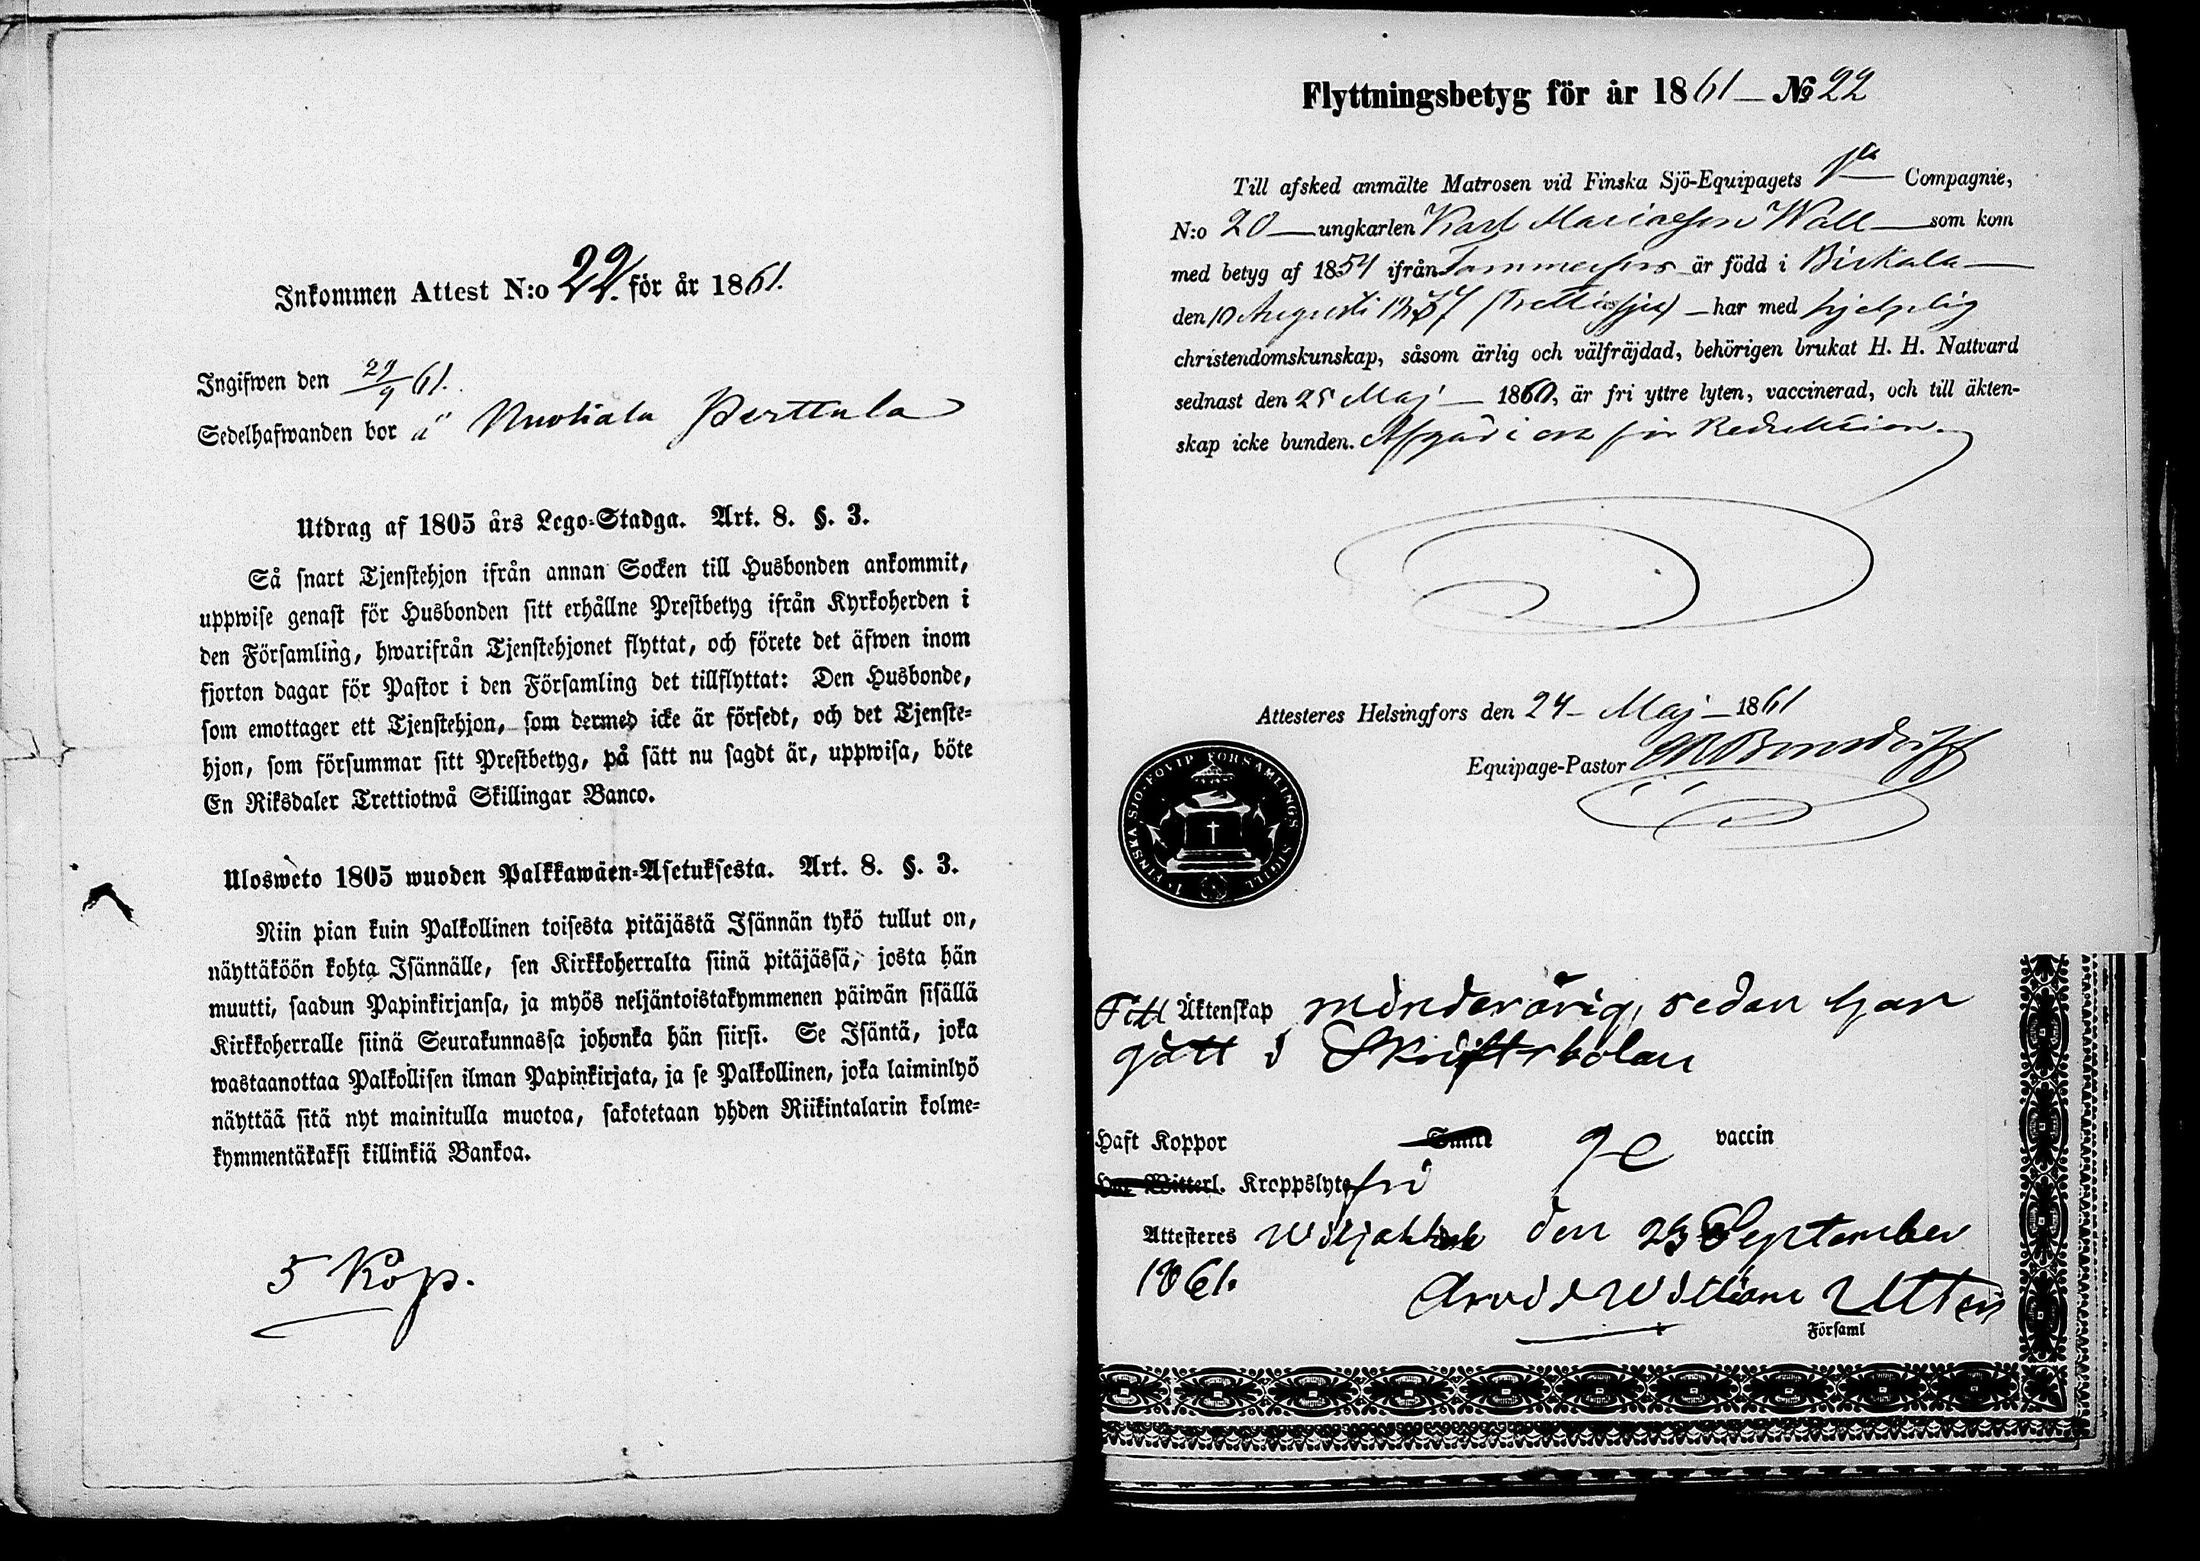 Inkommen Attest N:o 22. för år 1861.
Ingifwen den 29/9 61.
Sedelhafwanden bor å Nuoliala Perttula
Utdrag af 1805 års Lego-Stadga. Art. 8. §. 3.
Så snart Tjenstehjon ifrån annan Socken till Husbonden ankommit,
uppwise genast för Husbonden sitt erhållne Prestbetyg ifrån Kyrkoherden i
den Församling, hwarifrån Tjenstehjonet flyttat, och förete det äfwen inom
fjorton dagar för Pastor i den Församling det tillflyttat: Den Husbonde,
som emottager ett Tjenstehjon, som dermed icke är försedt, och det Tjenste-
hjon, som försummar sitt Prestbetyg, på sätt nu sagdt är, uppwisa, böte
En Riksdaler Trettiotwå Skillingar Banco.
Ulosweto 1805 wuoden Palkkawäen-Asetuksesta. Art. 8. §. 3.
Niin pian kuin Palkollinen toisesta pitäjästä Isännän tykö tullut on,
näyttäköön kohta Isännälle, sen Kirkkoherralta siinä pitäjässä, josta hän
muutti, saadun Papinkirjansa, ja myös neljäntoistakymmenen päiwän sisällä
Kirkkoherralle siinä Seurakunnassa johonka hän siirsi. Se Isäntä, joka
wastaanottaa Palkollisen ilman Papinkirjata, ja se Palkollinen, joka laiminlyö
näyttää sitä nyt mainitulla muotoa, sakotetaan yhden Riikintalarin kolme-
kymmentäkaksi killinkiä Bankoa.
5 Kop.
Flyttningsbetyg för år 1861 — No 22
Till afsked anmälte Matrosen vid Finska Sjö-Equipagets 1sta Compagnie,
N:o 20 — ungkarlen Karl Mariaeson Wall — som kom
med betyg af 1854 ifrån Tammerfors är född i Birkala —
den 10 Augusti 1837 (Trettiosju) — har med hjelplig
christendomskunskap, såsom ärlig och välfräjdad, behörigen brukat H. H. Nattvard
sednast den 25 Maj — 1860, är fri yttre lyten, vaccinerad, och till äkten-
skap icke bunden. Afgår i och för Reduktion.
Attesteres Helsingfors den 24 — Maj — 1861
Equipage-Pastor
FINSKA SJÖ-EQVIP FÖRSAMLINGS SIGILL
Till Äktenskap minderårig, sedan han
gått i Skriftskolan
Haft Koppor Samt ge vaccin
Har Witterl. Kroppslyte fri
Attesteres den 25 September
1861.
Arvid William
Församl